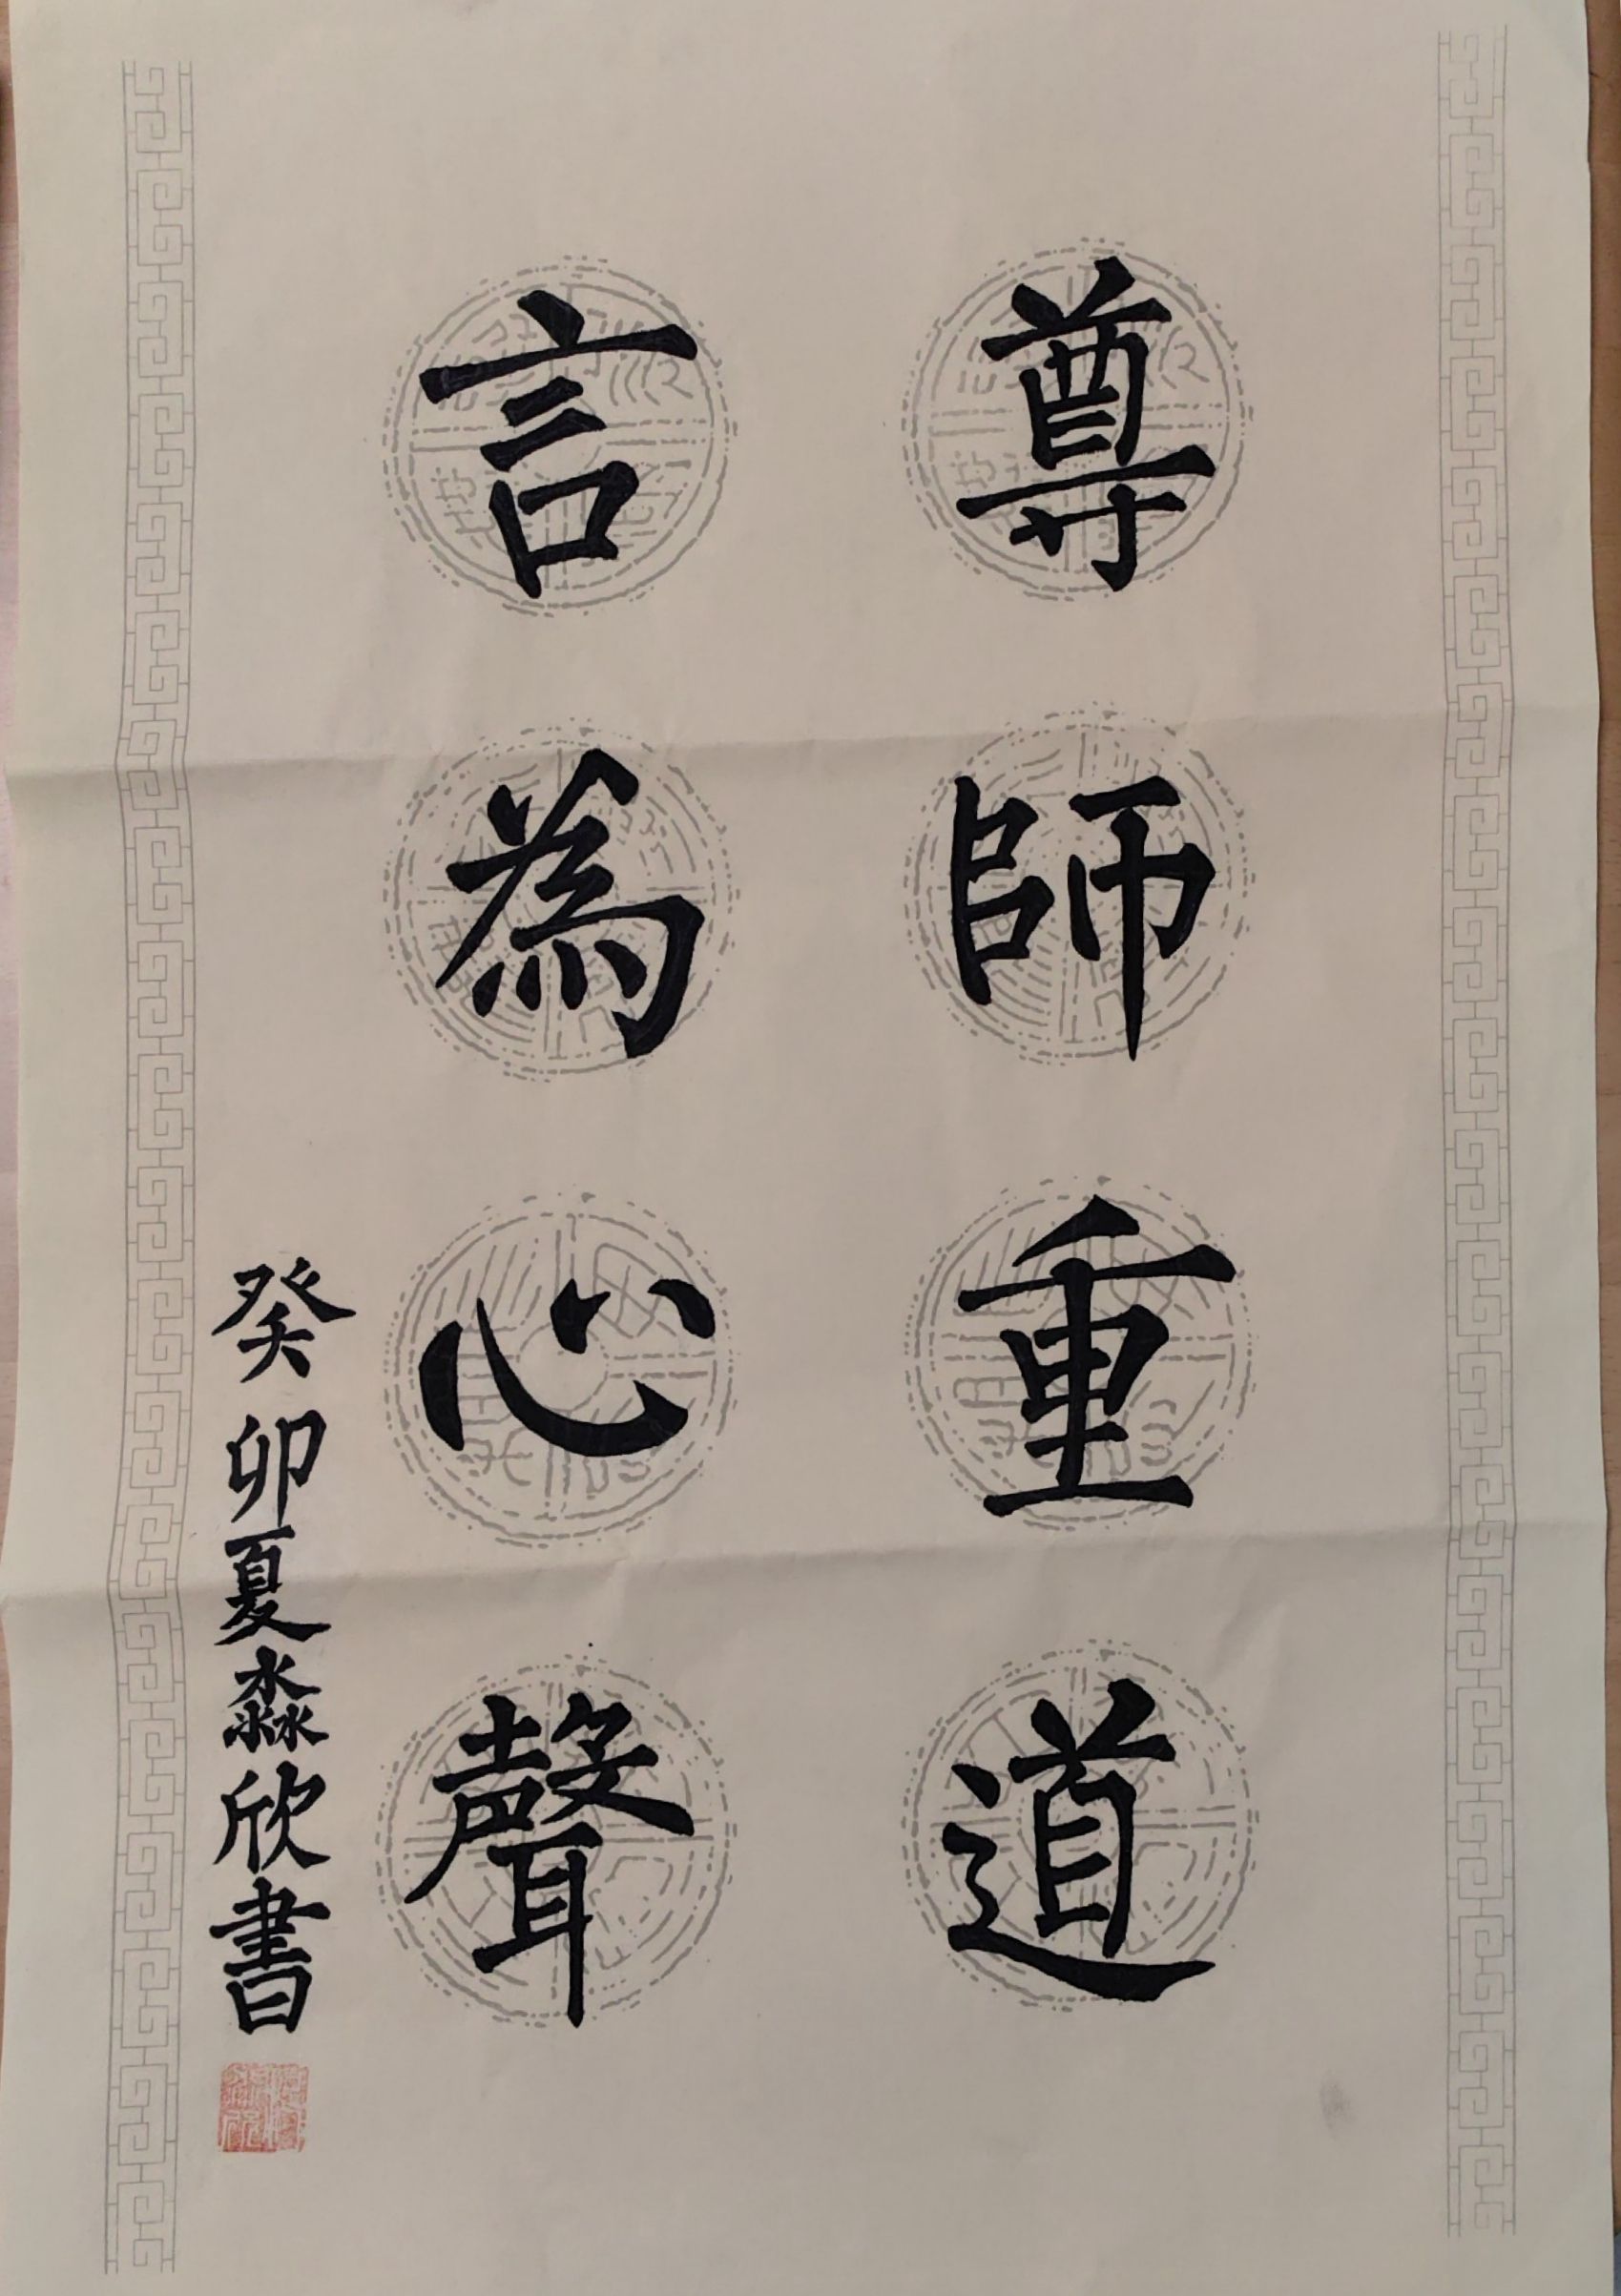 尊師重道
言為心聲
癸卯夏淼欣書